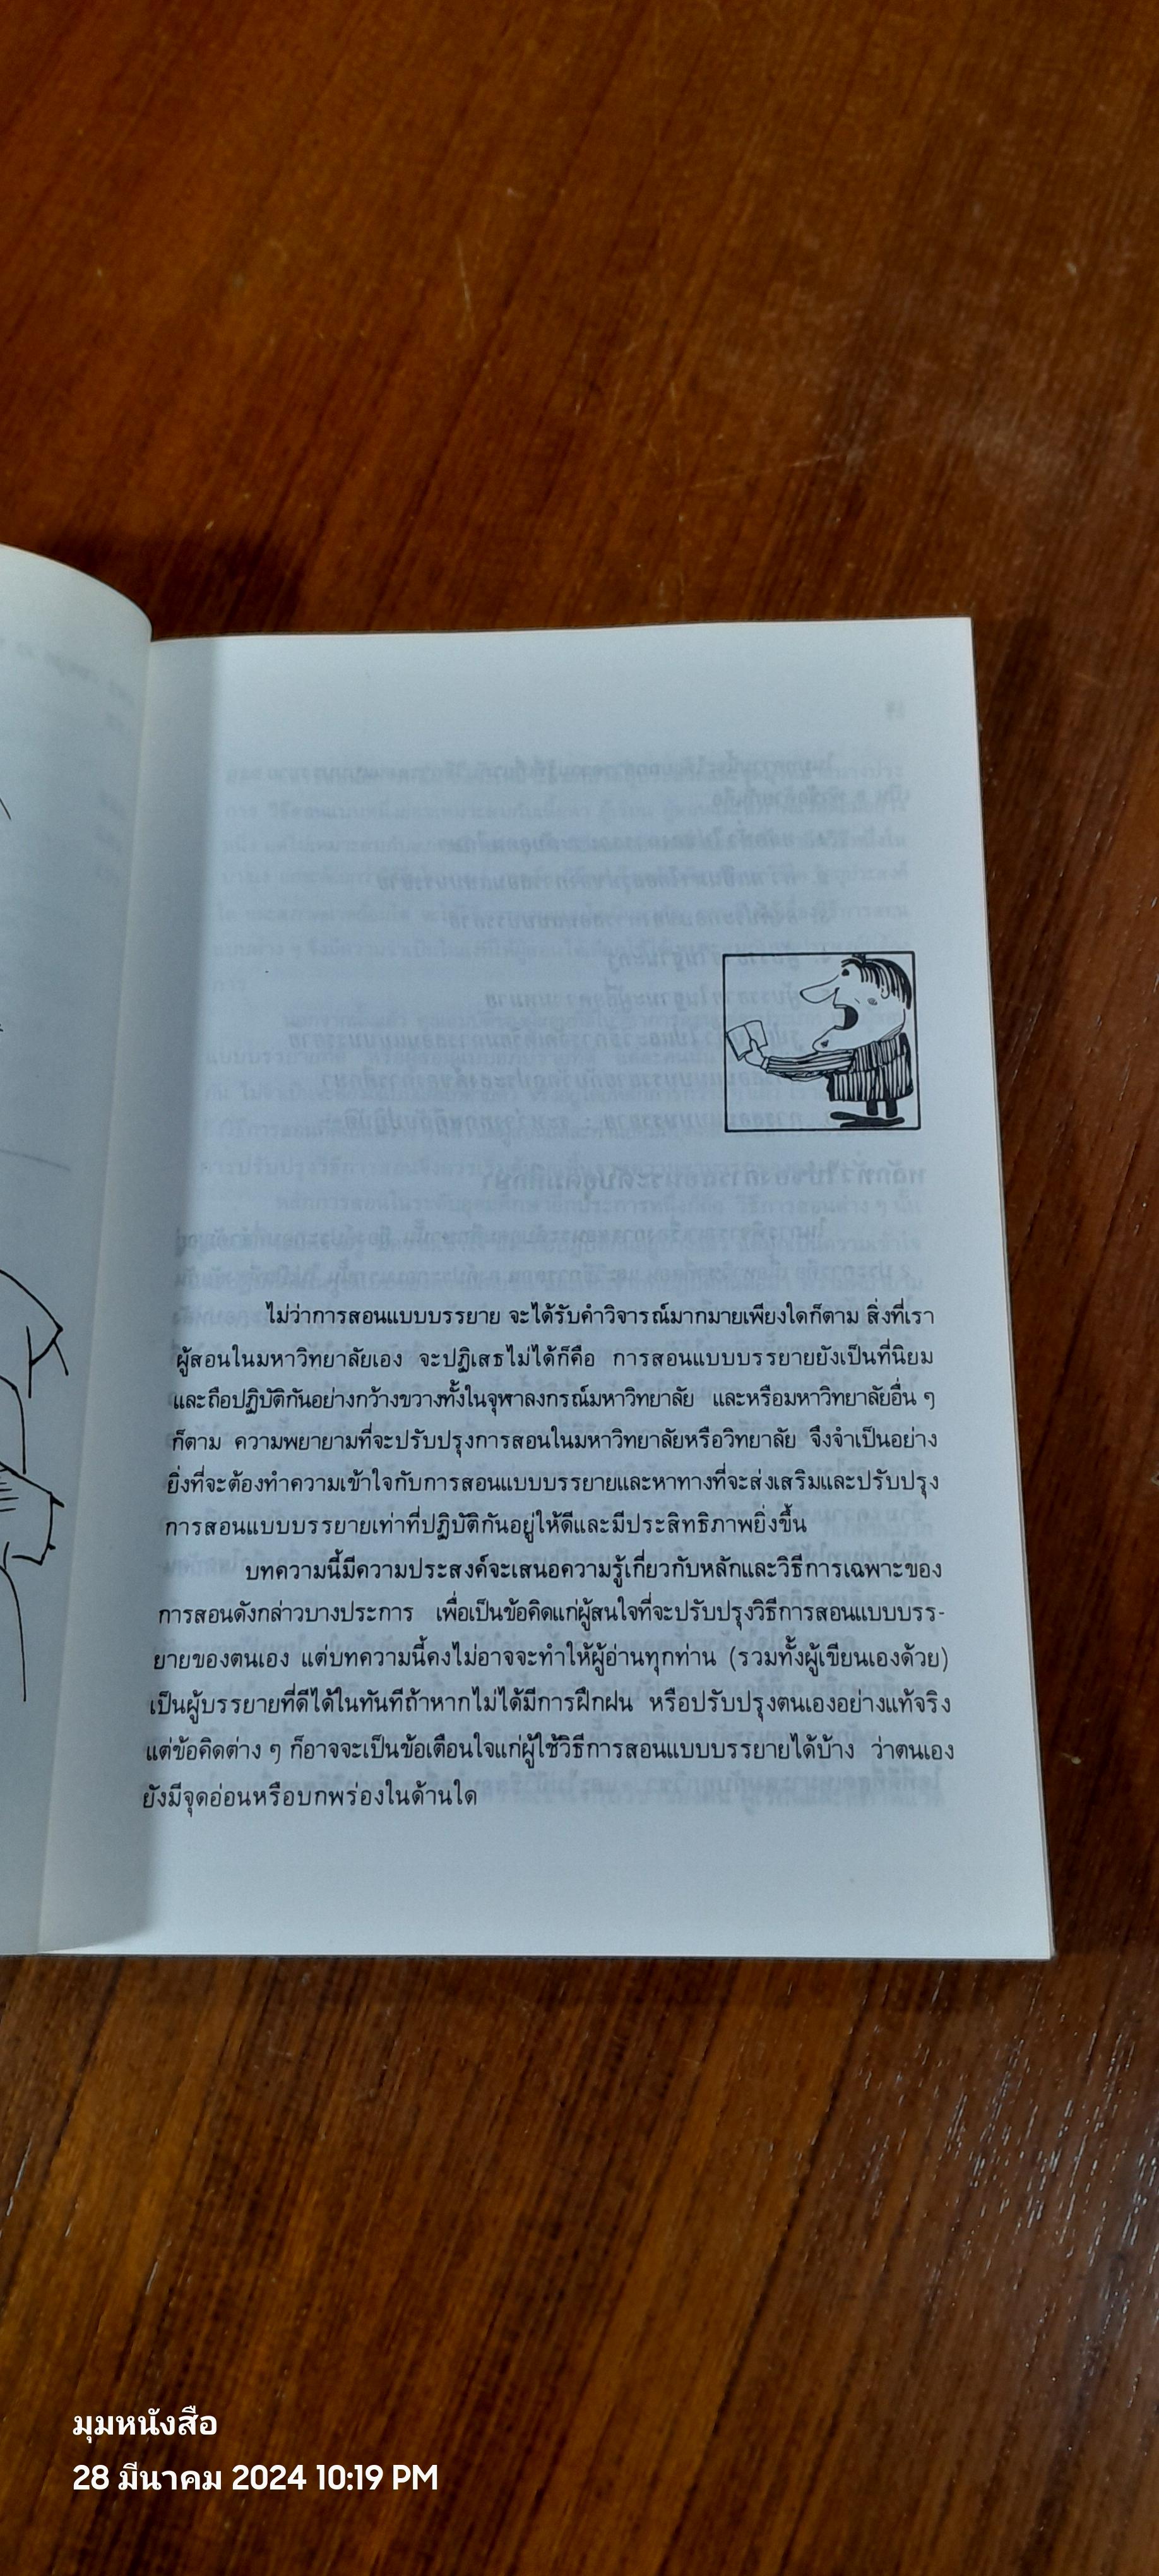 ไม่ว่าการสอนแบบบรรยาย จะได้รับคำวิจารณ์มากมายเพียงใดก็ตาม สิ่งที่เรา
ผู้สอนในมหาวิทยาลัยเอง จะปฏิเสธไม่ได้ก็คือ การสอนแบบบรรยายยังเป็นที่นิยม
และถือปฏิบัติกันอย่างกว้างขวางทั้งในจุฬาลงกรณ์มหาวิทยาลัย และหรือมหาวิทยาลัยอื่น ๆ
ก็ตาม ความพยายามที่จะปรับปรุงการสอนในมหาวิทยาลัยหรือวิทยาลัย จึงจำเป็นอย่าง
ยิ่งที่จะต้องทำความเข้าใจกับการสอนแบบบรรยายและหาทางที่จะส่งเสริมและปรับปรุง
การสอนแบบบรรยายเท่าที่ปฏิบัติกันอยู่ให้ดีและมีประสิทธิภาพยิ่งขึ้น
บทความนี้มีความประสงค์จะเสนอความรู้เกี่ยวกับหลักและวิธีการเฉพาะของ
การสอนดังกล่าวบางประการ เพื่อเป็นข้อคิดแก่ผู้สนใจที่จะปรับปรุงวิธีการสอนแบบบรร-
ยายของตนเอง แต่บทความนี้คงไม่อาจจะทำให้ผู้อ่านทุกท่าน (รวมทั้งผู้เขียนเองด้วย)
เป็นผู้บรรยายที่ดีได้ในทันทีถ้าหากไม่ได้มีการฝึกฝน หรือปรับปรุงตนเองอย่างแท้จริง
แต่ข้อคิดต่าง ๆ ก็อาจจะเป็นข้อเตือนใจแก่ผู้ใช้วิธีการสอนแบบบรรยายได้บ้าง ว่าตนเอง
ยังมีจุดอ่อนหรือบกพร่องในด้านใด
มุมหนังสือ
28 มีนาคม 2024 10:19 PM